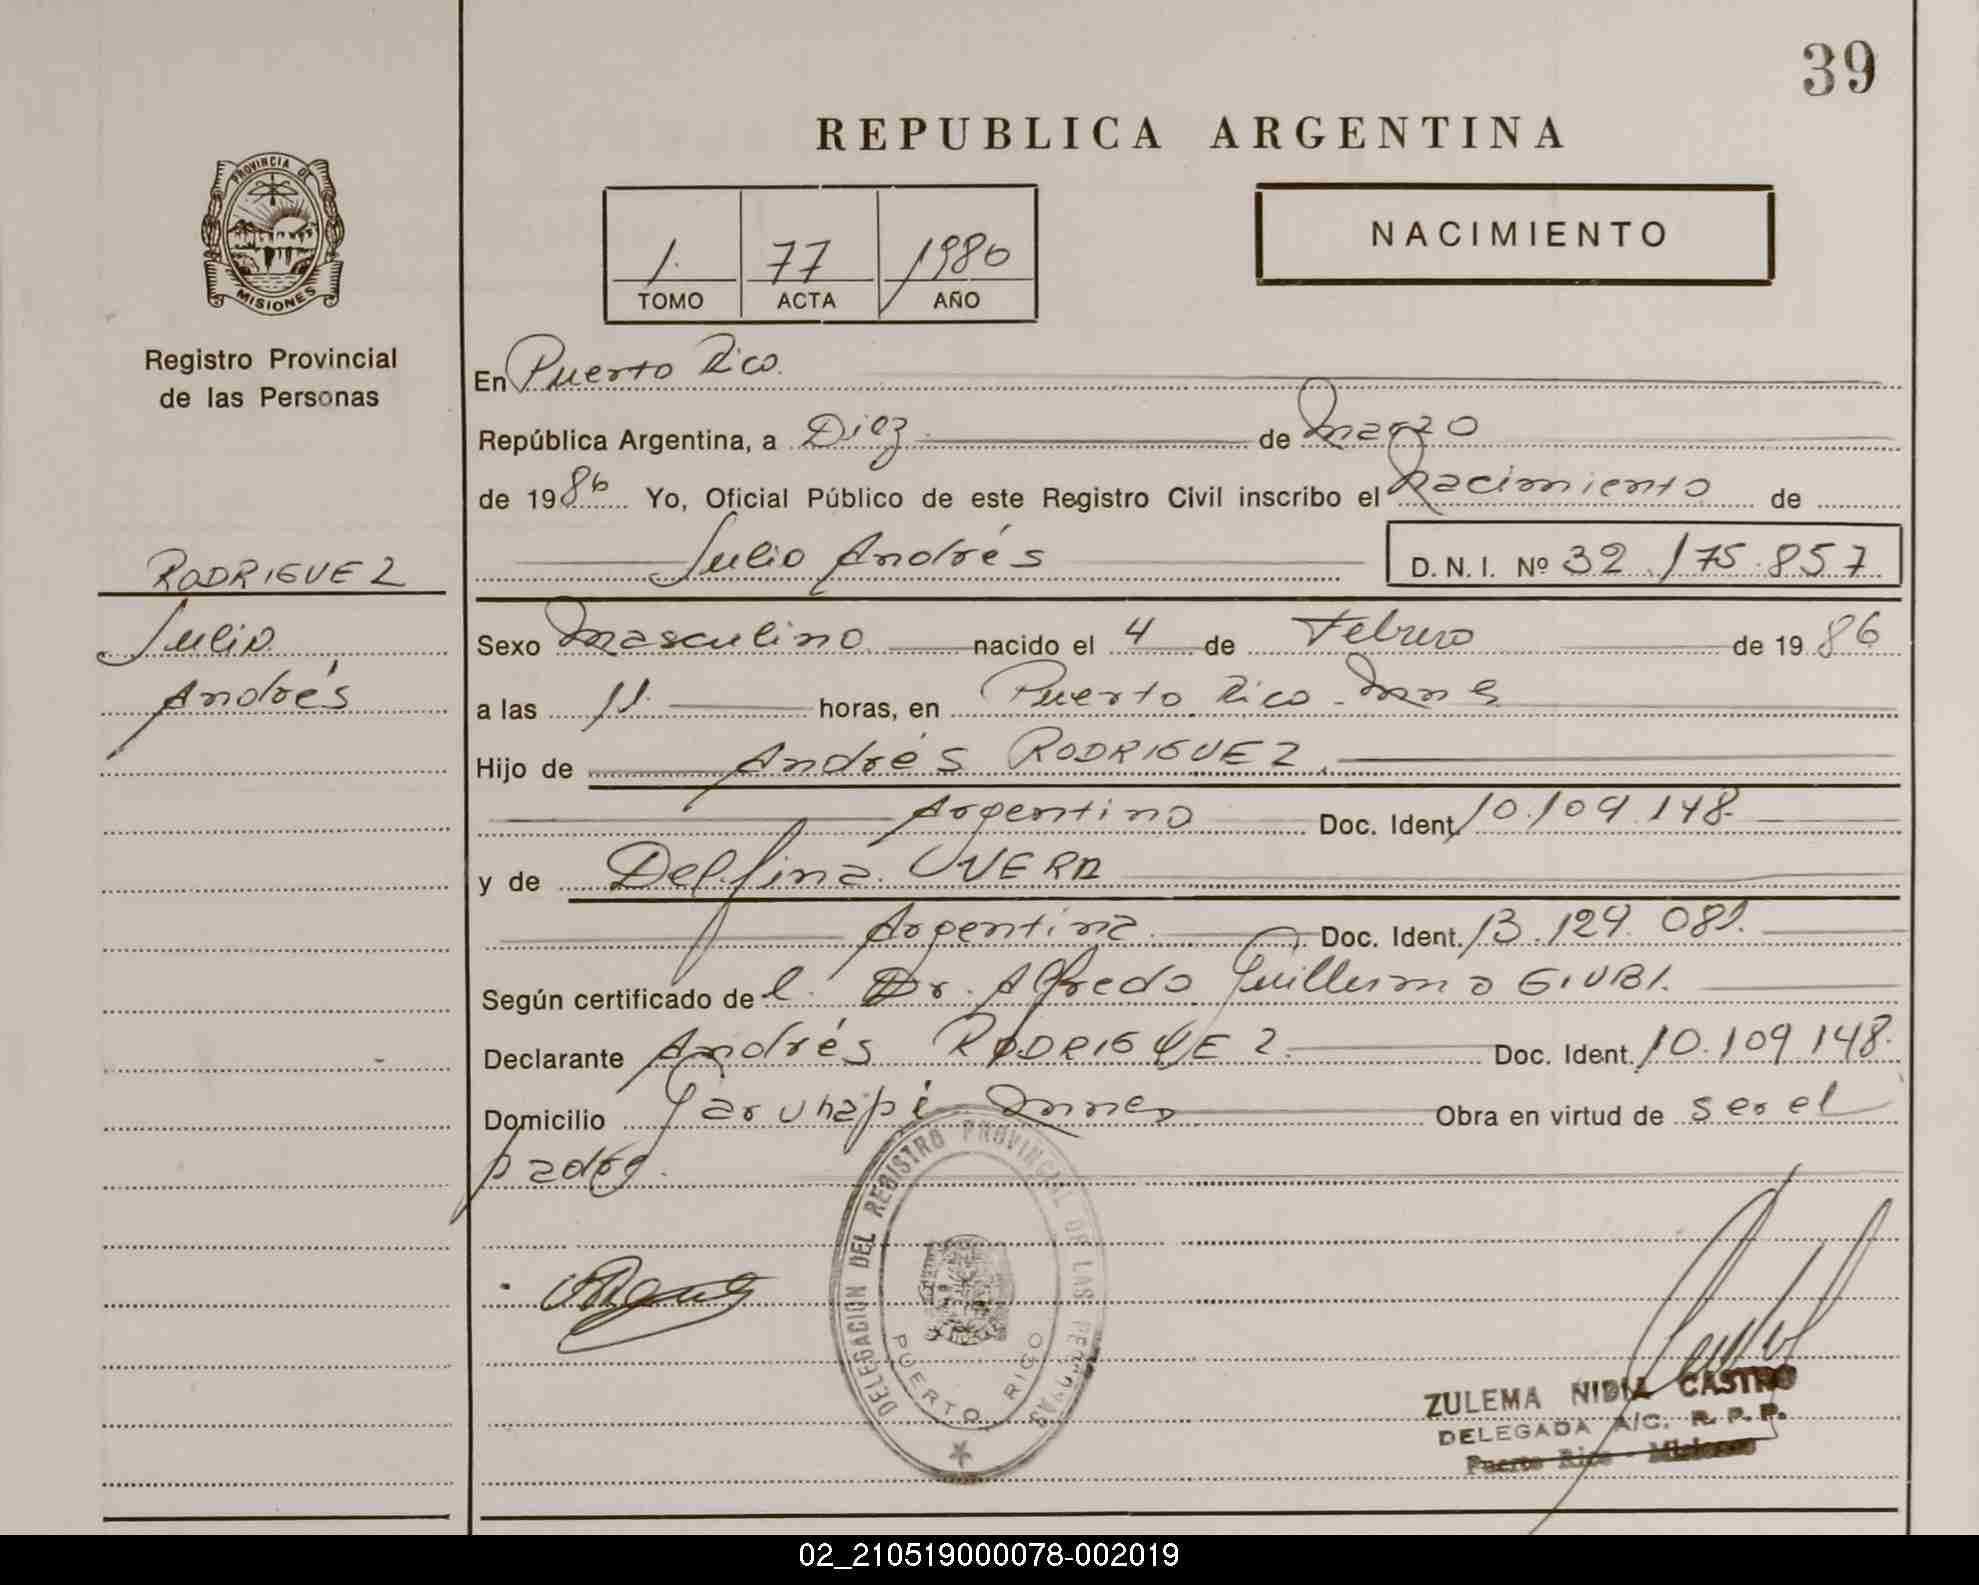 39
REPUBLICA ARGENTINA
PROVINCIA DE
MISIONES
Registro Provincial
de las Personas
RODRIGUEZ
Julio
Andrés
1. 77 1986
TOMO ACTA AÑO
NACIMIENTO
En Puerto Rico.
República Argentina, a Diez de Marzo
de 1986 Yo, Oficial Público de este Registro Civil inscribo el Nacimiento de
Julio Andrés D. N. I. Nº 32.175.857
Sexo Masculino nacido el 4 de Febrero de 1986
a las 11. horas, en Puerto Rico - Mnes
Hijo de Andrés RODRIGUEZ.
Argentino Doc. Ident. 10.109.148.
y de Delfina VERA
Argentina. Doc. Ident. 13.129.081.
Según certificado del. Dr. Alfredo Guillermo GIUBI.
Declarante Andrés RODRIGUEZ. Doc. Ident. 10.109.148.
Domicilio Garuhapi Mnes Obra en virtud de ser el
padre.
DELEGACION DEL REGISTRO PROVINCIAL DE LAS PERSONAS
PUERTO RICO
ZULEMA NIDIA CASTRO
DELEGADA A/C. R. P. P.
Puerto Rico - Misiones
02_210519000078-002019